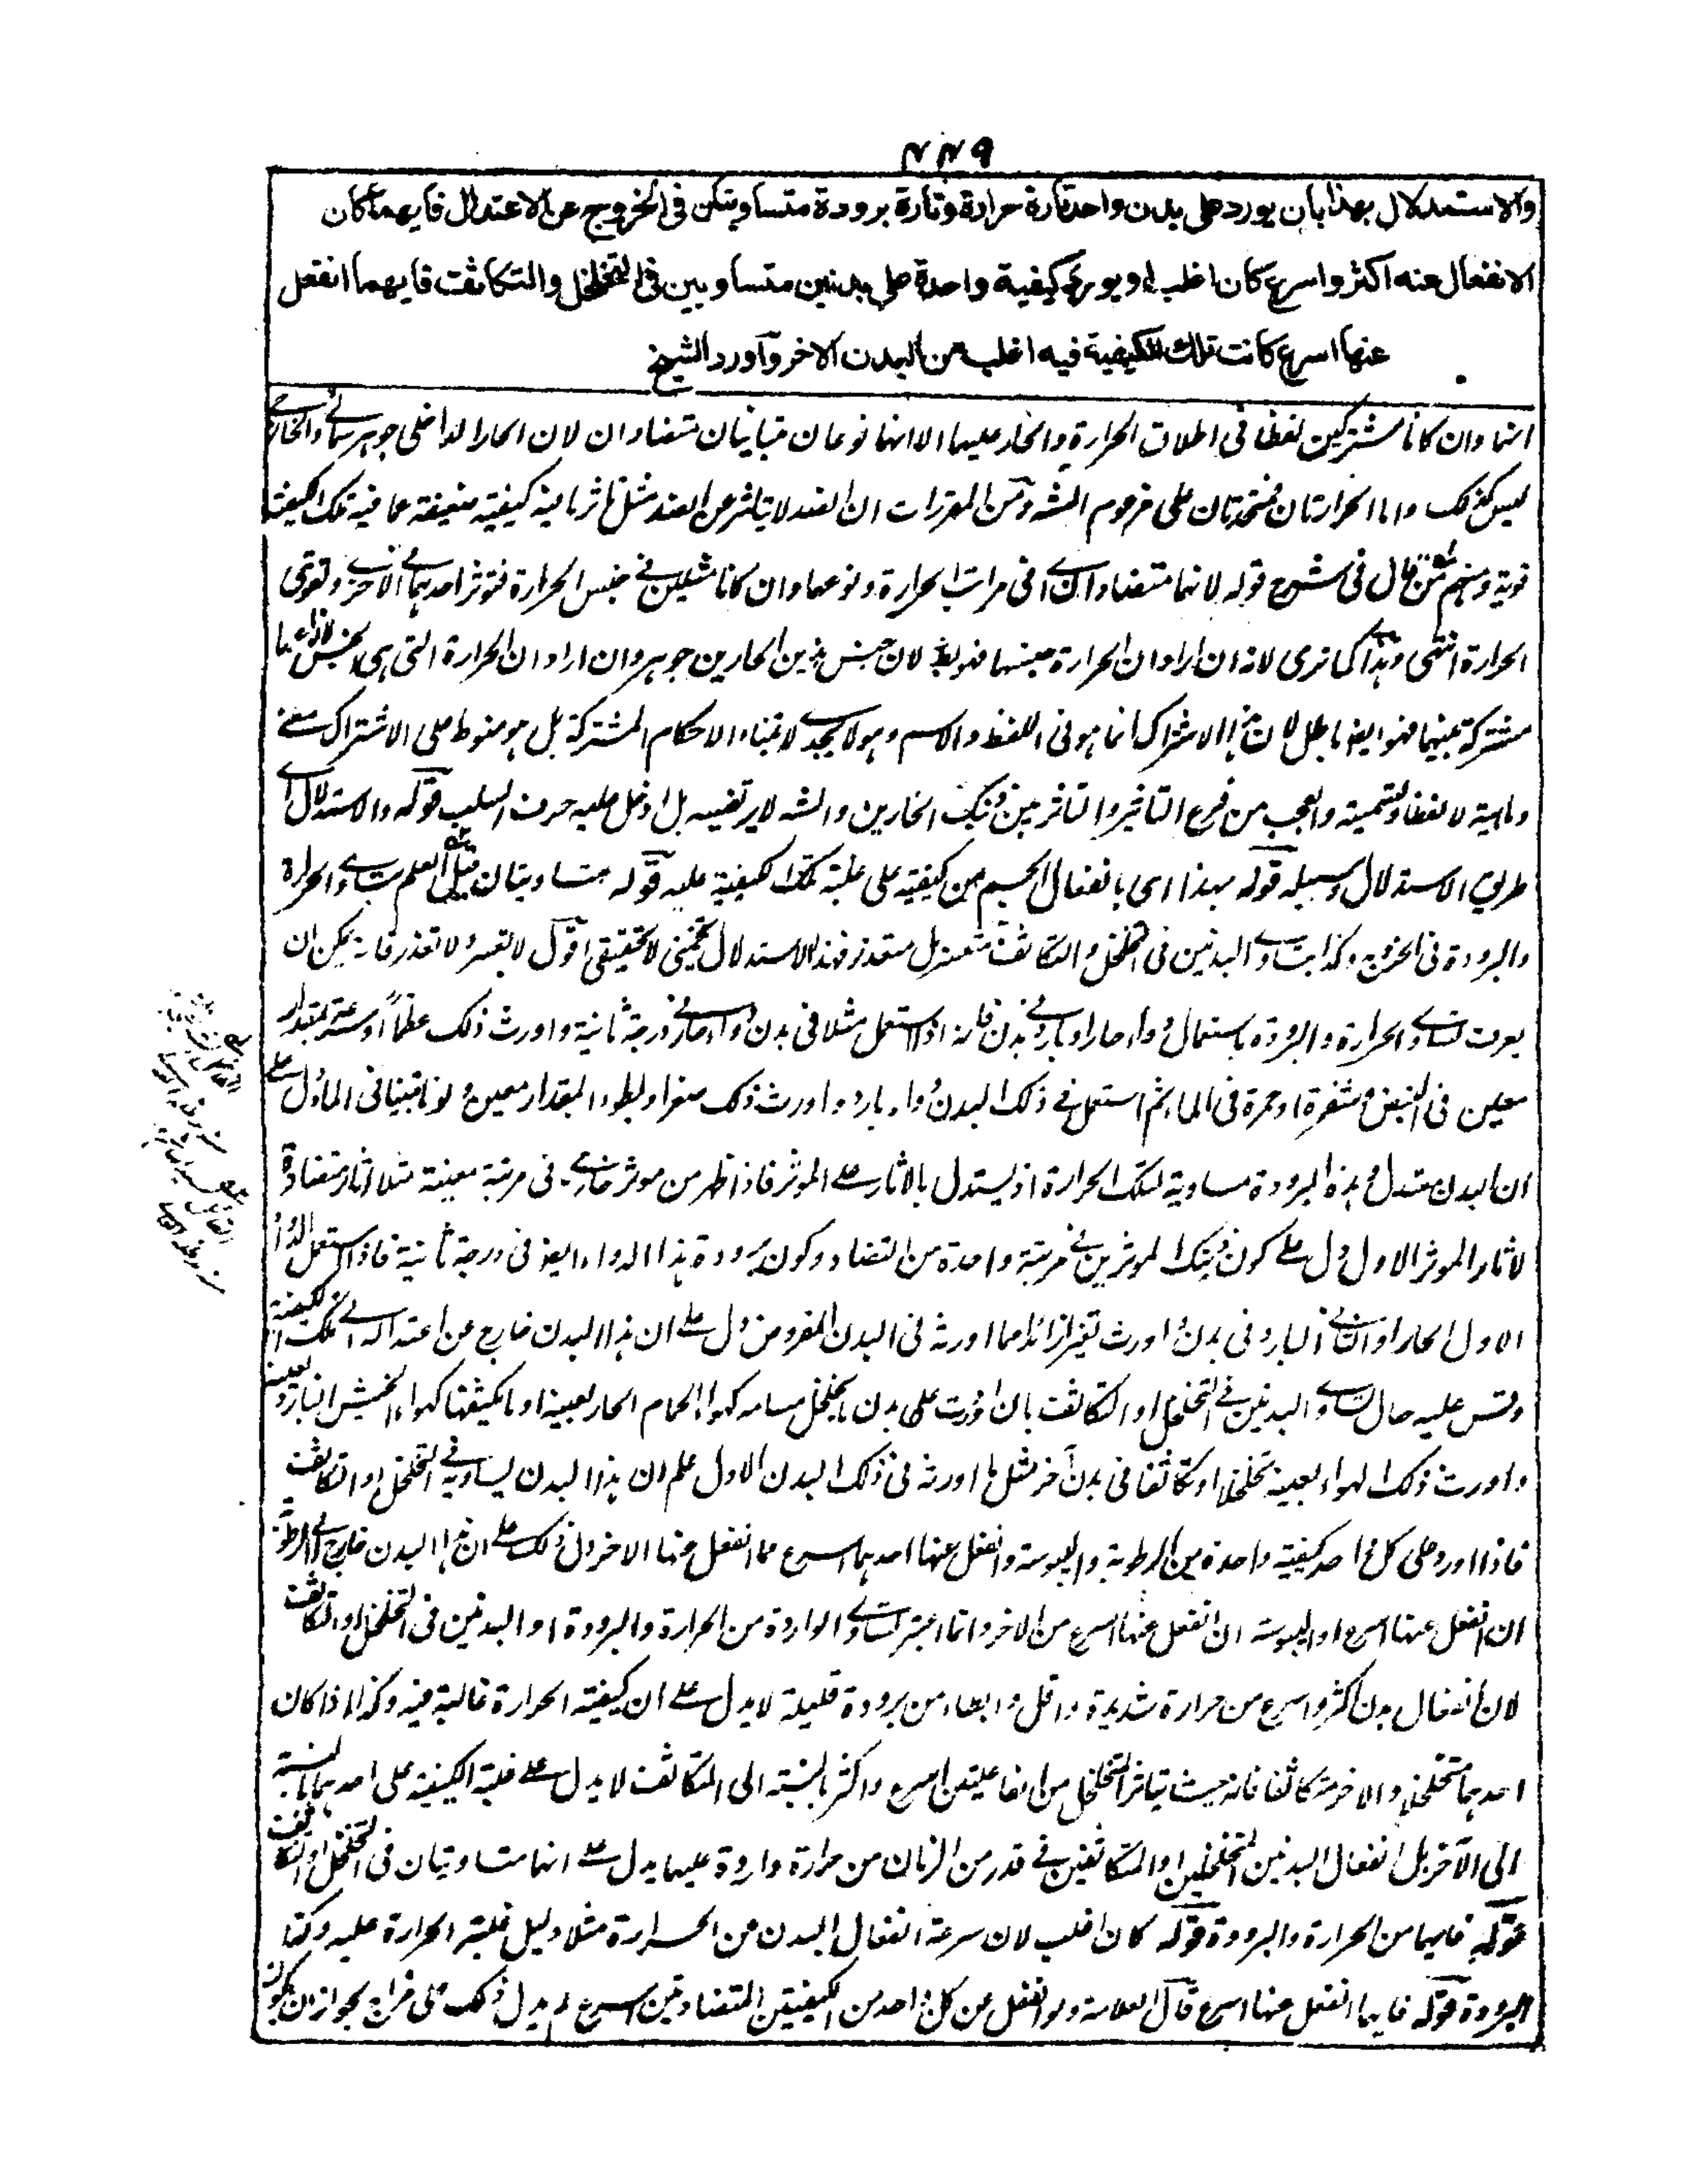 ٤٤٩
والاستدلال بهذا بان يورد على بدن واحد تارة حرارة وتارة برودة متساويتين فى الخروج عن الاعتدال فايهما كان
الانفعال عنه اكثر واسرع كان اغلب او يورد كيفية واحدة على بدنين متساويين فى التخلخل والتكاثف فايهما انفعل
عنها اسرع كانت تلك الكيفية فيه اغلب من البدن الاخر وآورد الشيخ
انهما وان كانا مشتركين لفظا فى اطلاق الحرارة والحار عليهما الا انهما نوعان متباينان متضادان لان الحار الداخلى جوهر سمائے والخارجے
ليس كذلك واما الحرارتان فمتحدتان على مزعوم الشه ومن المقررات ان الضد لا يتاثر عن الضد مثل تاثر ما فيه كيفية ضعيفة عما فيه تلك الكيفية
قوية ومنهم من قال فى شرح قوله لانهما متضادان اى فى مراتب الحرارة ونوعها وان كانا مثلين فے جنس الحرارة فتوثر احدهما فے الاخرے وتقوى
الحرارة انتهى وهذا كما ترى لانه ان اراد ان الحرارة جنسها فهو بط لان جنس هذين الحارين جوهر وان اراد ان الحرارة التى هى الجنس
مشتركة بينهما فهو ايضا باطل لان هذا الاشتراك انما هو فى اللفظ والاسم وهو لا يجدے لابتناء الاحكام المشتركة بل هو منوط على الاشتراك معنے
وماهية لا لفظا وتسمية والعجب من فرع التاثير والتاثر بين ذينك الحارين والشه لا يرتضيه بل ادخل عليه حرف السلب قوله والاستدلال اے
طريق الاستدلال وسبيله قوله بهذا اى بانفعال الجسم من كيفية على غلبة تلك الكيفية عليه قوله متساويتان قيل العلم بتساوے الحرارة
والبرودة فى الخروج وكذا بتساوے البدنين فى التخلخل والتكاثف متعسر بل متعذر فهذا الاستدلال تخمينى لا تحقيقى اقول لا تعسر ولا تعذر فانه يمكن ان
يعرف تساوے الحرارة والبرودة باستعمال دواء حار او بارد فے بدن فانه اذا استعمل مثلا فى بدن دواء حار فے درجة ثانية واورث ذلك عظما او سرعة بمقدار
معين فى النبض وشقرة او حمرة فى الماء ثم استعمل فے ذلك البدن دواء بارد واورث ذلك صغرا وبطوء المقدار معين ولونا تبنيا فى الماء دل علے
ان البدن معتدل وهذه البرودة مساوية لتلك الحرارة اذ يستدل بالاثار علے الموثر فاذا ظهر من موثر خارجے فى مرتبة معينة مثلا اثار متضادة
لاثار الموثر الاول دل علے كون ذينك الموثرين فے مرتبة واحدة من التضاد وكون برودة هذا الدواء ايضا فى درجة ثانية فاذا استعمل الدواء
الاول الحار او الثانے البارد فى بدن واورث تغيرا زائدا مما اورثه فى البدن المفروض دل علے ان هذا البدن خارج عن اعتداله الے تلك الكيفية
وقس عليه حال تساوے البدنين فے التخلخل او التكاثف بان اوردت على بدن ما يخلخل مسامه كهواء الحمام الحار بعينه او ما يكثفها كهواء الخيش البارد بعينه
واورث ذلك الهواء بعينه تخلخلا او تكاثفا فى بدن آخر مثل ما اورثه فى ذلك البدن الاول علم ان هذا البدن يساويه فے التخلخل او التكاثف
فاذا اورد على كل واحد كيفية واحدة من الرطوبة واليبوسة وانفعل عنها احدهما اسرع مما انفعل عنها الاخر دل ذلك علے ان هذا البدن خارج الے الرطوبة
ان انفعل عنها اسرع او اليبوسة ان انفعل عنها اسرع من الاخر وانما اعتبر تساوے الواردة من الحرارة والبرودة او البدنين فى التخلخل او التكاثف
لان انفعال بدن اكثر واسرع من حرارة شديدة واقل وابطاء من برودة قليلة لا يدل علے ان كيفية الحرارة غالبة فيه وكذا اذا كان
احدهما متخلخلا والاخر متكاثفا فانه حيث يتاثر المتخلخل من الفاعليتين اسرع واكثر بالنسبة الى المتكاثف لا يدل علے غلبة الكيفية على احدهما بالنسبة
الى الآخر بل انفعال البدنين المتخلخلين او المتكاثفين فے قدر من الزمان من حرارة واردة عليهما يدل علے انهما متساويتان فى التخلخل او التكاثف
قوله فايهما من الحرارة والبرودة قوله كان اغلب لان سرعة انفعال البدن من الحرارة مثلا دليل غلبة الحرارة عليه وكذا
البرودة قوله فايهما انفعل عنها اسرع قال العلامة ولو انفعل عن كل واحد من الكيفيتين المتضادتين اسرع لم يدل ذلك على مزاج لجواز ان يكون